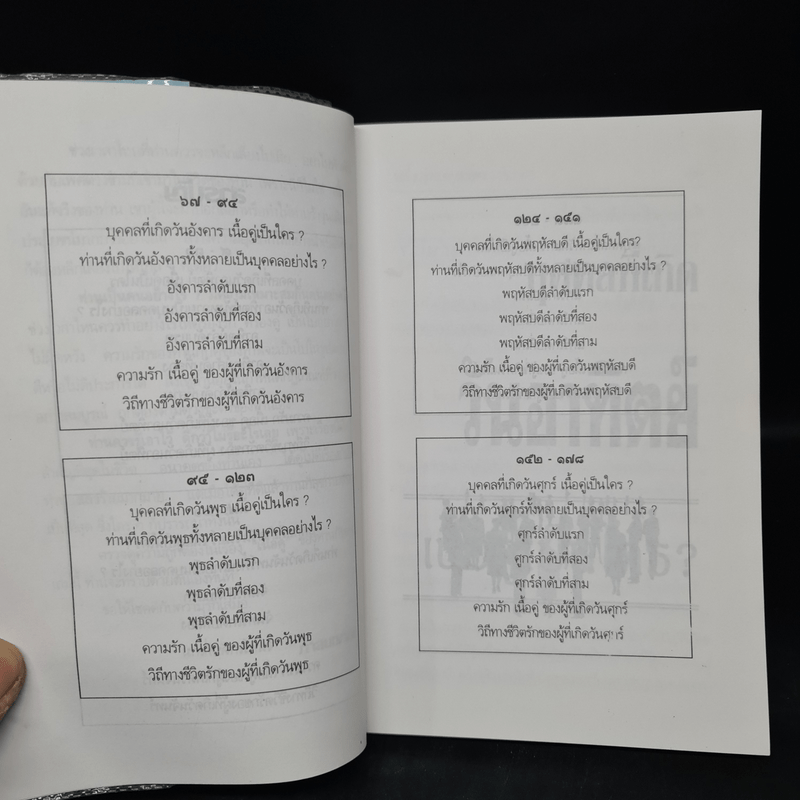 ๖๗ - ๙๔
บุคคลที่เกิดวันอังคาร เนื้อคู่เป็นใคร ?
ท่านที่เกิดวันอังคารทั้งหลายเป็นบุคคลอย่างไร ?
อังคารลำดับแรก
อังคารลำดับที่สอง
อังคารลำดับที่สาม
ความรัก เนื้อคู่ ของผู้ที่เกิดวันอังคาร
วิถีทางชีวิตรักของผู้ที่เกิดวันอังคาร
๙๕ - ๑๒๓
บุคคลที่เกิดวันพุธ เนื้อคู่เป็นใคร ?
ท่านที่เกิดวันพุธทั้งหลายเป็นบุคคลอย่างไร ?
พุธลำดับแรก
พุธลำดับที่สอง
พุธลำดับที่สาม
ความรัก เนื้อคู่ ของผู้ที่เกิดวันพุธ
วิถีทางชีวิตรักของผู้ที่เกิดวันพุธ
๑๒๔ - ๑๕๑
บุคคลที่เกิดวันพฤหัสบดี เนื้อคู่เป็นใคร?
ท่านที่เกิดวันพฤหัสบดีทั้งหลายเป็นบุคคลอย่างไร ?
พฤหัสบดีลำดับแรก
พฤหัสบดีลำดับที่สอง
พฤหัสบดีลำดับที่สาม
ความรัก เนื้อคู่ ของผู้ที่เกิดวันพฤหัสบดี
วิถีทางชีวิตรักของผู้ที่เกิดวันพฤหัสบดี
๑๕๒ - ๑๗๘
บุคคลที่เกิดวันศุกร์ เนื้อคู่เป็นใคร ?
ท่านที่เกิดวันศุกร์ทั้งหลายเป็นบุคคลอย่างไร ?
ศุกร์ลำดับแรก
ศุกร์ลำดับที่สอง
ศุกร์ลำดับที่สาม
ความรัก เนื้อคู่ ของผู้ที่เกิดวันศุกร์
วิถีทางชีวิตรักของผู้ที่เกิดวันศุกร์